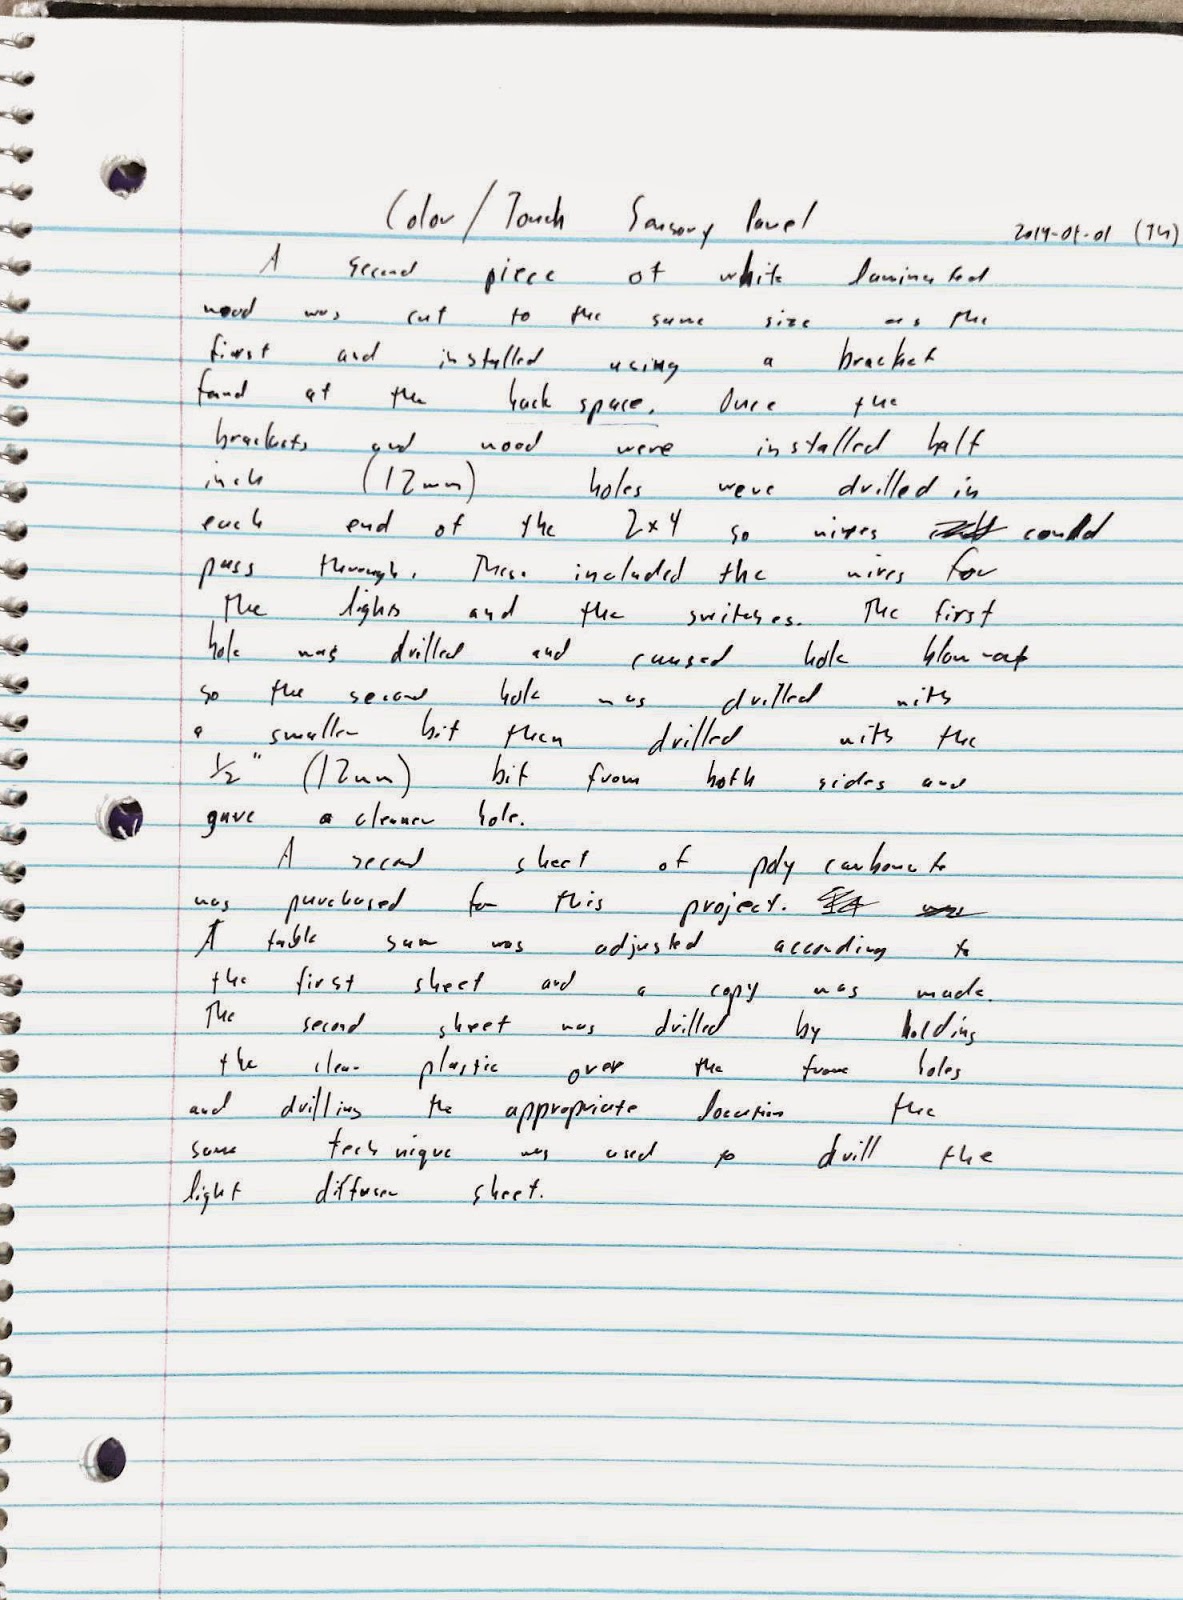 Color/Touch Sensory Panel
2014-05-01 (Th)
A second piece of white laminated
wood was cut to the same size as the
first and installed using a bracket
found at the hack space. Once the
brackets and wood were installed half
inch (12mm) holes were drilled in
each end of the 2x4 so wires could
pass through. These included the wires for
the lights and the switches. The first
hole was drilled and caused hole blow-out
so the second hole was drilled with
a smaller bit then drilled with the
1/2" (12mm) bit from both sides and
gave a cleaner hole.
A second sheet of poly carbonate
was purchased for this project.
A table saw was adjusted according to
the first sheet and a copy was made.
The second sheet was drilled by holding
the clear plastic over the frame holes
and drilling the appropriate location the
same technique was used to drill the
light diffuser sheet.